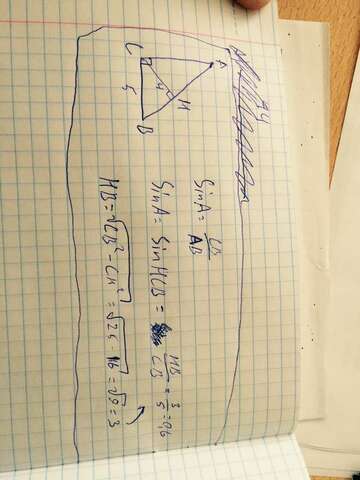 74
A
H
4
C
5
B
SinA = CB/AB
SinA = SinHCB = HB/CB = 3/5 = 0,6
HB = √CB² - CH² = √25 - 16 = √9 = 3